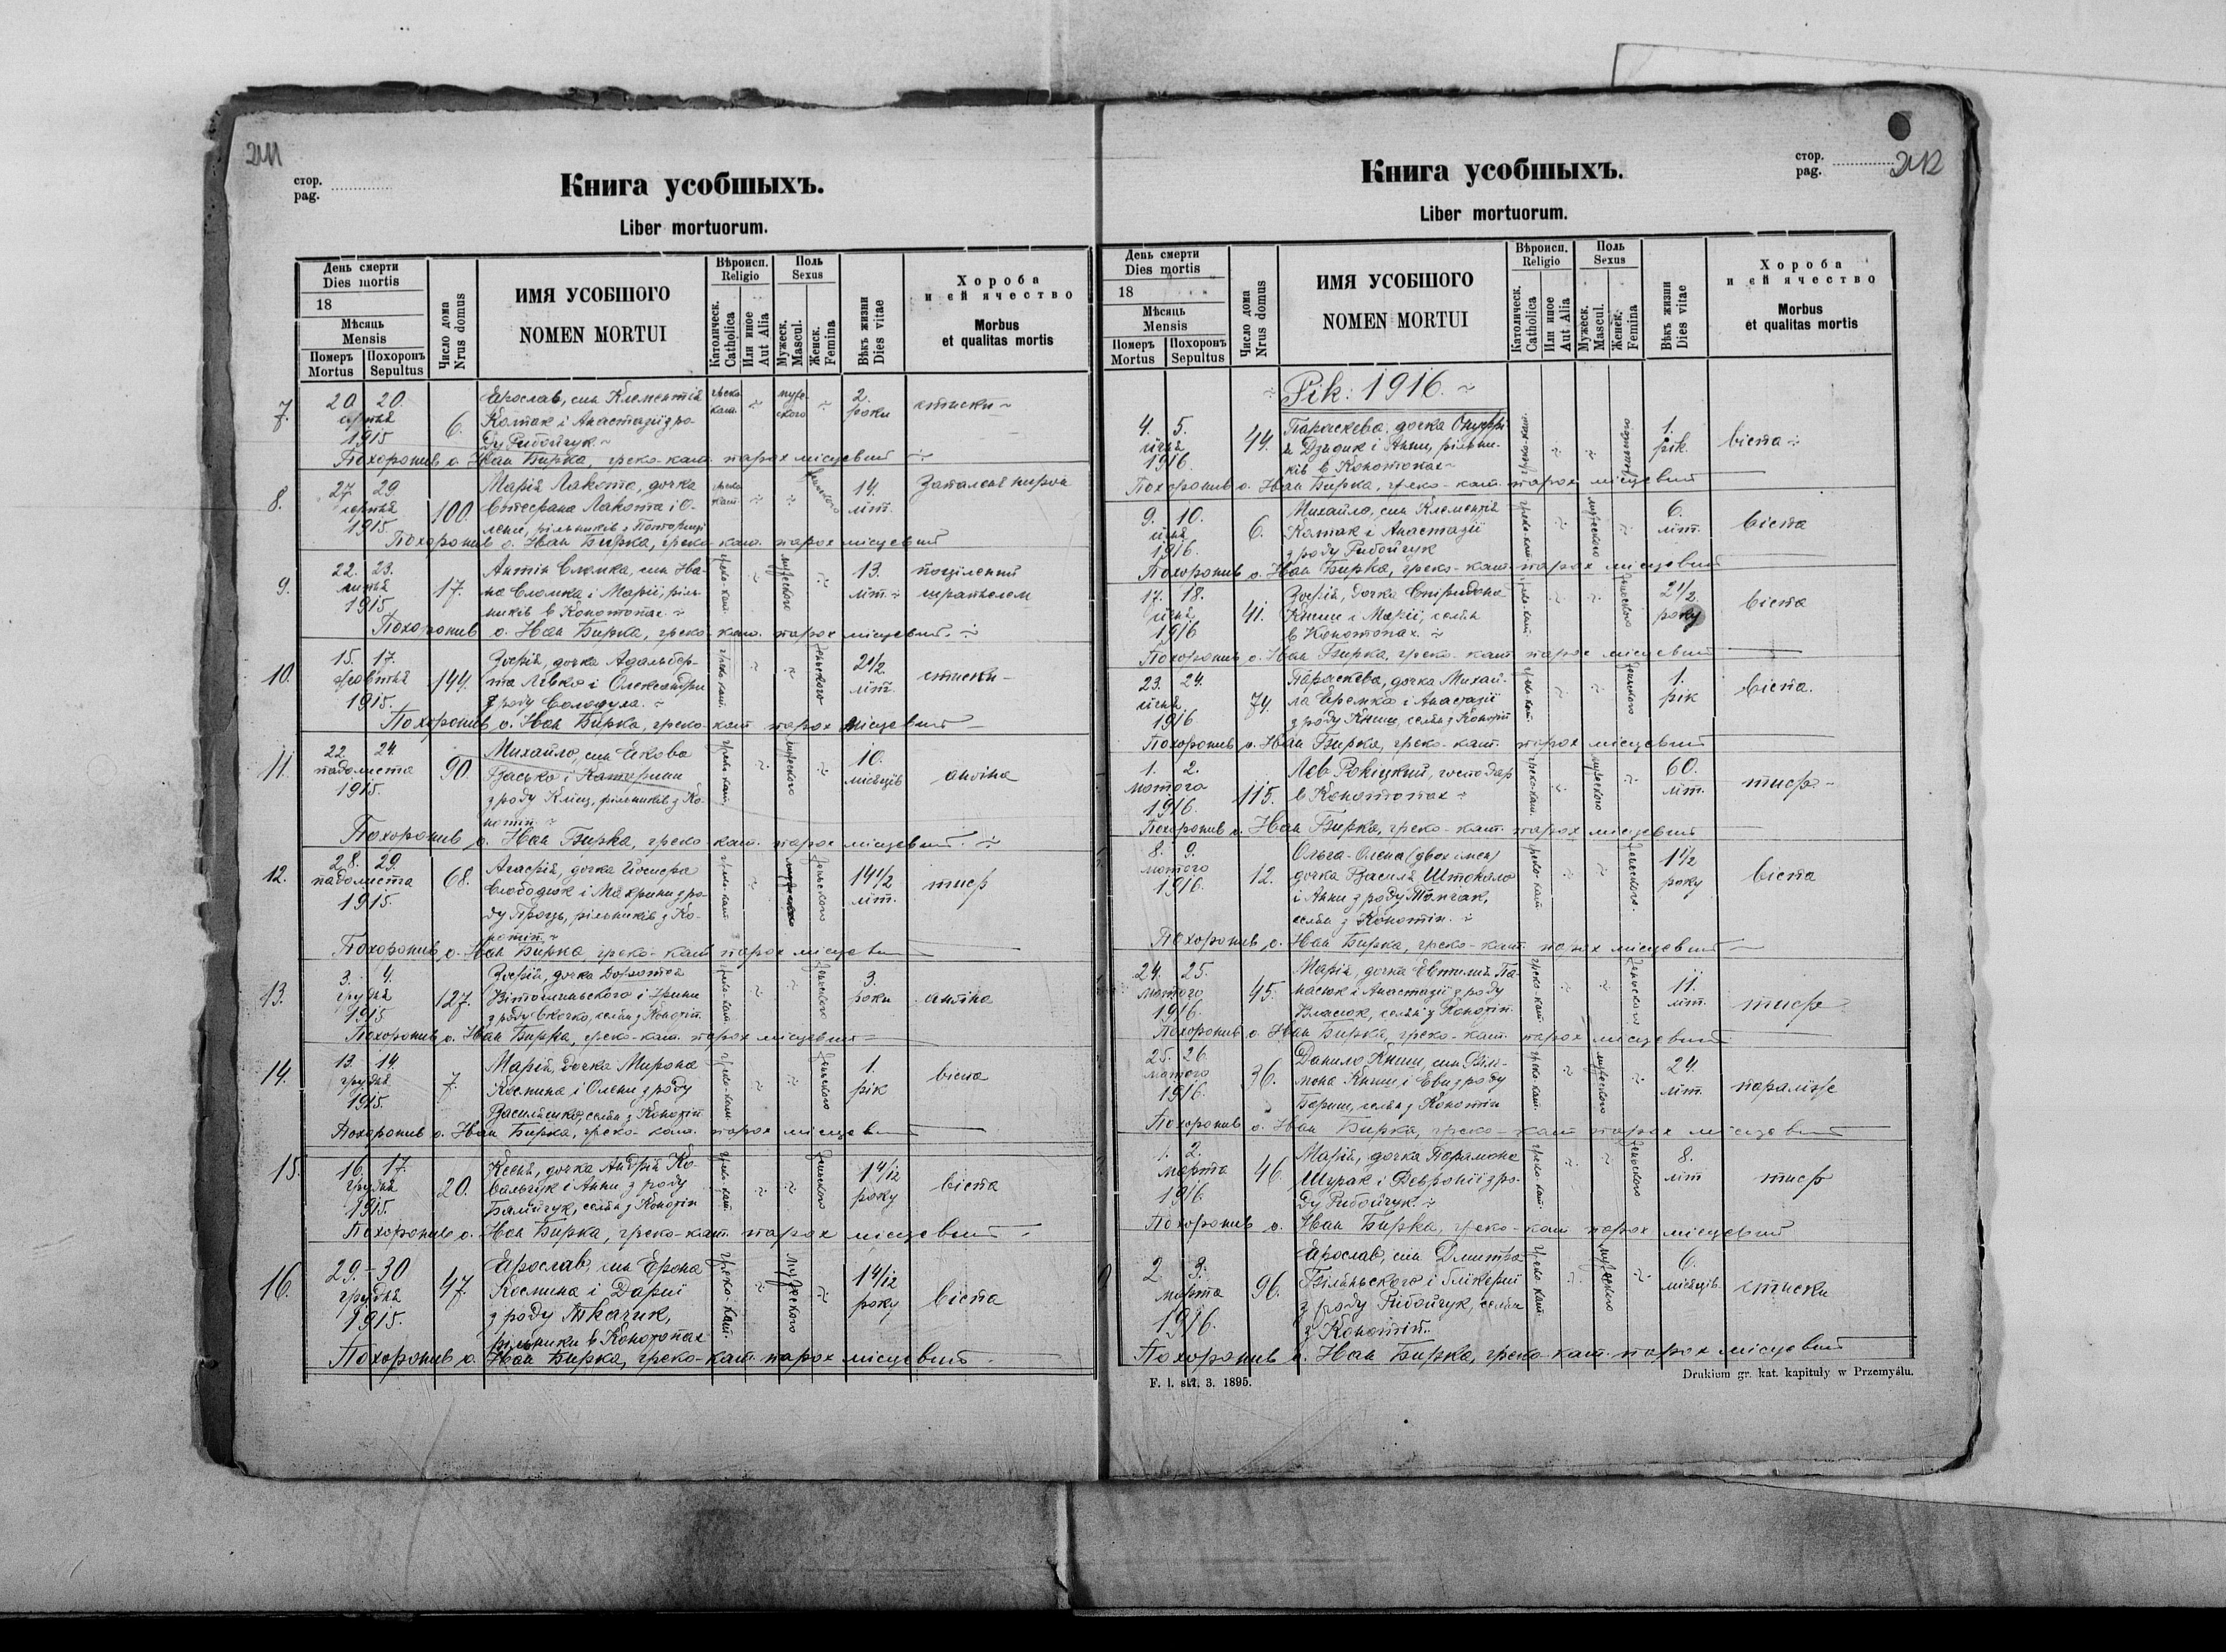 211
стор.
pag.
Книга усобшыхъ.
Liber mortuorum.
День смерти
Dies mortis
18
Мѣсяць
Mensis
Померъ
Mortus
Похоронъ
Sepultus
Число дома
Nrus domus
ИМЯ УСОБШОГО
NOMEN MORTUI
Вѣроисп.
Religio
Католическ.
Catholica
Или иное
Aut Alia
Поль
Sexus
Мужеск.
Mascul.
Женск.
Femina
Вѣкъ жизни
Dies vitae
Хороба
и ей ячество
Morbus
et qualitas mortis
7. 20. 20. серпня 1915 6. Ярослав, син Клементія греко-кат. мужеского 2. роки стиски
Котак і Анастазії з ро-
ду Рибойчук
Похоронив о. Іван Бирка, греко-кат. парох місцевий
8. 27 29 серпня 1915 100. Марія Лакота, дочка греко-кат. женьского 14. літ.
Стефана Лакота і О-
лени, рільників з
Похоронив о. Іван Бирка, греко-кат. парох місцевий
9. 22. 23. 1915 17. Антін Сломка, син Іва- греко-кат. мужеского 13. літ. поцілений шрапнелом
на Сломка і Марії, ріль-
ників в Конотопах
Похоронив о. Іван Бирка, греко-кат. парох місцевий
10. 15. 17. жовтня 1915. 144. Зофія, дочка Адальбер- греко-кат. женьского 2 1/2 літ. стиски
та Левко і Олександри
з роду Солодуха.
Похоронив о. Іван Бирка, греко-кат. парох місцевий
11. 22. 24. падолиста 1915. 90. Михайло, син Якова греко-кат. мужеского 10. місяців ангіна
Васько і Катерини
з роду Клищ, рільників з Ко-
нотіп
Похоронив о. Іван Бирка, греко-кат. парох місцевий
12. 28. 29. падолиста 1915. 68. Агафія, дочка Йосифа греко-кат. женьского 14 1/2 літ. тиф
Слободюк і Макрини з ро-
ду Проць, рільників з Ко-
нотіп
Похоронив о. Іван Бирка, греко-кат. парох місцевий
13. 3. 4. грудня 1915 127. Зофія, дочка Доротея греко-кат. женьского 3. роки ангіна
і Ірини
з роду Скочко, селян з Конотіп.
Похоронив о. Іван Бирка, греко-кат. парох місцевий
14. 13. 14. грудня 1915. 7. Марія, дочка Мирона греко-кат. женьского 1. рік віспа
Космина і Олени з роду
селян з Конотіп
Похоронив о. Іван Бирка, греко-кат. парох місцевий
15. 16. 17. грудня 1915. 20. Ксеня, дочка Андрія Ко- греко-кат. женьского 1 4/12 року віспа
вальчук і Анни з роду
селян з Конотіп
Похоронив о. Іван Бирка, греко-кат. парох місцевий
16. 29.-30 грудня 1915. 47. Ярослав, син Ярона греко-кат. мужеского 1 4/12 року віспа
Космина і Дарії
з роду Ткачик,
рільники в Конотопах
Похоронив о. Іван Бирка, греко-кат. парох місцевий
212
стор.
pag.
Книга усобшыхъ.
Liber mortuorum.
День смерти
Dies mortis
18
Мѣсяць
Mensis
Померъ
Mortus
Похоронъ
Sepultus
Число дома
Nrus domus
ИМЯ УСОБШОГО
NOMEN MORTUI
Вѣроисп.
Religio
Католическ.
Catholica
Или иное
Aut Alia
Поль
Sexus
Мужеск.
Mascul.
Женск.
Femina
Вѣкъ жизни
Dies vitae
Хороба
и ей ячество
Morbus
et qualitas mortis
Рік: 1916.
4. 5. січня 1916. 44. Параскева, дочка Онуфрі- греко-кат. женьского 1. рік. віспа
я Дзидик і Анни, рільни-
ків в Конотопах
Похоронив о. Іван Бирка, греко-кат. парох місцевий
9. 10. січня 1916. 6. Михайло, син Клементія греко-кат. мужеского 6. літ. віспа
Котак і Анастазії
з роду Рибойчук
Похоронив о. Іван Бирка, греко-кат. парох місцевий
17. 18. січня 1916 41. Зофія, дочка Спіридона греко-кат. женьского 2 1/2 року віспа
Книш і Марії, селян
в Конотопах.
Похоронив о. Іван Бирка, греко-кат. парох місцевий
23. 24. січня 1916 74. Параскева, дочка Михай- греко-кат. женьского 1. рік віспа.
ла Яремко і Анастазії
з роду Книш, селян з Конотіп
Похоронив о. Іван Бирка, греко-кат. парох місцевий
1. 2. лютого 1916. 115. Лев Рокіцкий, господар греко-кат. мужеского 60. літ. тиф
в Конотопах
Похоронив о. Іван Бирка, греко-кат. парох місцевий
8. 9. лютого 1916. 12. Ольга-Олена (двох імен) греко-кат. женьского. 1 1/2 року віспа
дочка Василя Штокало
і Анни з роду
селян з Конотіп.
Похоронив о. Іван Бирка, греко-кат. парох місцевий
24. 25. лютого 1916. 45. Марія, дочка Евтимія Па- греко-кат. женьского 11. літ. тиф
насюк і Анастазії з роду
Власюк, селян з Конотіп
Похоронив о. Іван Бирка, греко-кат. парох місцевий
25. 26. лютого 1916. 36. Данило Книш, син Філи- греко-кат. мужеского 24. літ. параліж
мона Книш і Еви з роду
Бариш, селян з Конотіп
Похоронив о. Іван Бирка, греко-кат. парох місцевий
1. 2. марта 1916. 46. Марія, дочка Парамона греко-кат. женьского 8. літ тиф
Щурак і Февронії з ро-
ду Рибойчук.
Похоронив о. Іван Бирка, греко-кат. парох місцевий
2 3. марта 1916. 96. Ярослав, син Дмитра греко-кат. мужеского 6. місяців. стиски
Білиньского і Глікерії
з роду Рибойчук, селян
з Конотіп.
Похоронив о. Іван Бирка, греко-кат. парох місцевий
F. l. skł. 3. 1895.
Drukiem gr. kat. kapituły w Przemyślu.